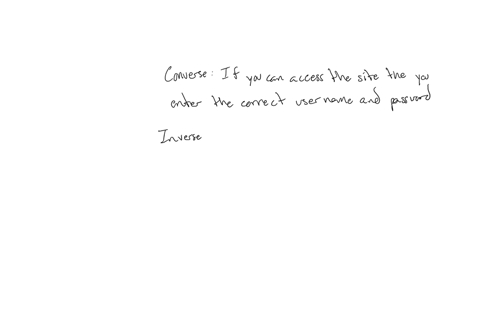 Converse: If you can access the site the you
enter the correct username and password
Inverse